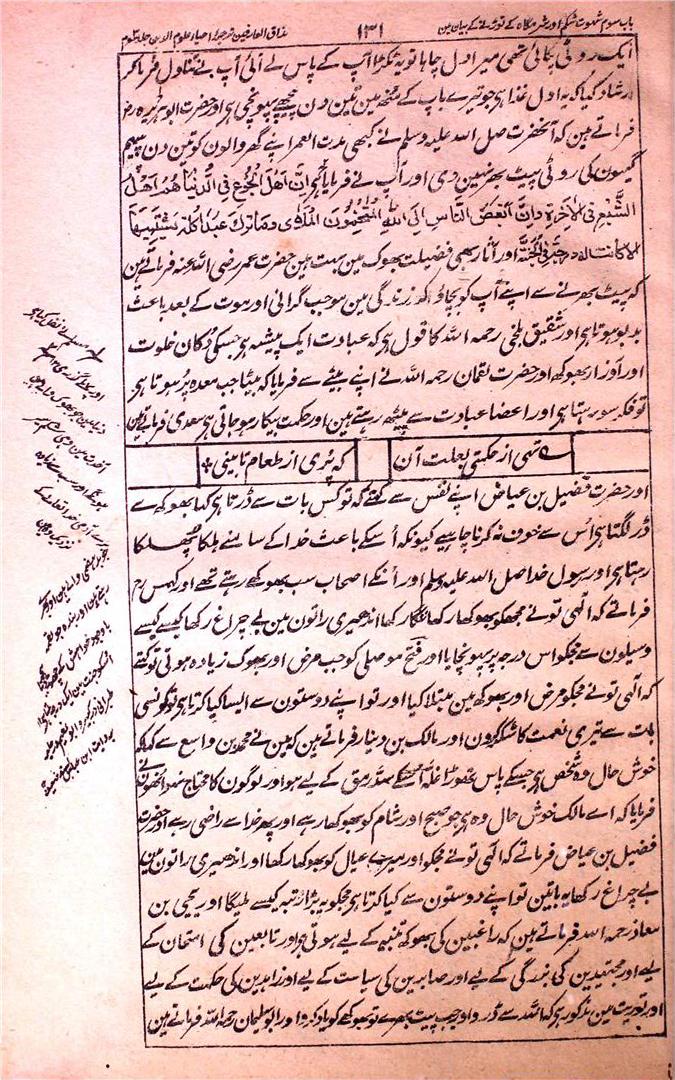 باب سوم شہوت شکم اور شرمگاہ کے توڑنے کے بیان مین
۱۳۱
مذاق العارفین ترجمہ احیاء علوم الدین جلد سوم
ایک روٹی پکائی تھی میرا دل چاہا تو یہ ٹکڑا آپ کے پاس لے آئی آپ نے تناول فرما کر
ارشاد کیا کہ یہ اول غذا ہی جو تیرے باپ کے منھ مین تین دن پیچھے پہونچی ہی اور حضرت ابو ہریرہ رضہ
فرماتے ہین کہ آنحضرت صلے اللہ علیہ وسلم نے کبھی مدت العمر اپنے گھر والون کو تین دن پیہم
گیہون کی روٹی پیٹ بھر نہین دی اور آپ نے فرمایا ہی اِنَّ اَهْلَ الْجُوْعِ فِی الدُّنْیَا هُمْ اَهْلُ
الشِّبَعِ فِی الْاٰخِرَةِ وَاِنَّ اَبْغَضَ النَّاسِ اِلَی اللّٰهِ الْمُتَّخِمُوْنَ الْمَلَاٰی وَمَا تَرَكَ عَبْدٌ اُكْلَةً یَشْتَهِیْهَا
اِلَّا كَانَتْ لَهٗ دَرَجَةٌ فِی الْجَنَّةِ اور آثار بھی فضیلت بھوک مین بہت ہین حضرت عمر رضی اللہ عنہ فرماتے ہین
کہ پیٹ بھرنے سے اپنے آپ کو بچاؤ کہ زندگی مین موجب گرانی اور موت کے بعد باعث
بدبو ہوتا ہی اور شقیق بلخی رحمہ اللہ کا قول ہی کہ عبادت ایک پیشہ ہی جسکی دُکان خلوت
اور اوزار بھوکھ اور حضرت لقمان رحمہ اللہ نے اپنے بیٹے سے فرمایا کہ بیٹا جب معدہ پُر ہوتا ہی
تو فکر سو رہتا ہی اور اعضا عبادت سے بیٹھ رہتے ہین اور حکمت بیکار ہو جاتی ہی سعدی فرماتے ہین
تہی از حکمتی بعلت آن
کہ پُری از طعام تا بینی
اور حضرت فضیل بن عیاض اپنے نفس سے کہتے کہ تو کس بات سے ڈرتا ہی کہا بھوکھ سے
ڈر لگتا ہی اُس سے خوف نہ کرنا چاہیے کیونکہ اُسکے باعث خدا کے سامنے ہلکا پھلکا
رہتا ہی اور رسول خدا صلے اللہ علیہ وسلم اور اُنکے اصحاب سب بھوکھے رہتے تھے اور کہمس رح
فرماتے کہ الٰہی تو نے مجھکو بھوکھا رکھا ننگا رکھا اندھیری راتون مین بے چراغ رکھا کیسے کیسے
وسیلون سے مجکو اس درجہ پر پہونچایا اور فتح موصلی کو جب مرض اور بھوک زیادہ ہوتی تو کہتے
کہ الٰہی تو نے مجکو مرض اور بھوکھ مین مبتلا کیا اور تو اپنے دوستون سے ایسا کیا کرتا ہی تو کونسی
بات سے تیری نعمت کا شکر کرون اور مالک بن دینار فرماتے ہین کہ مین نے محمد بن واسع سے کہا کہ
خوش حال وہ شخص ہی جسکے پاس تھوڑا غلہ سد رمق کے لیے ہو اور لوگون کا محتاج نہو انھون نے
فرمایا کہ اے مالک خوش حال وہ ہی جو صبح اور شام کو بھوکھا رہے اور پھر خدا سے راضی رہے اور حضرت
فضیل بن عیاض فرماتے کہ الٰہی تو نے مجکو اور میرے عیال کو بھوکھا رکھا اور اندھیری راتون مین
بے چراغ رکھا یہ باتین تو اپنے دوستون سے کیا کرتا ہی مجکو یہ بڑا رتبہ کیسے ملیگا اور یحیی بن
معاذ رحمہ اللہ فرماتے ہین کہ راغبین کی بھوکھ تنبیہ کے لیے ہوتی ہی اور تابعین کی امتحان کے
لیے اور مجتہدین کی بزرگی کے لیے اور صابرین کی سیاست کے لیے اور زاہدین کی حکمت کے لیے
اور توریت مین مذکور ہی کہ اللہ سے ڈر اور جب پیٹ بھرے تو بھوکھے کو یاد کر اور ابو سلیمان رحمہ اللہ فرماتے ہین